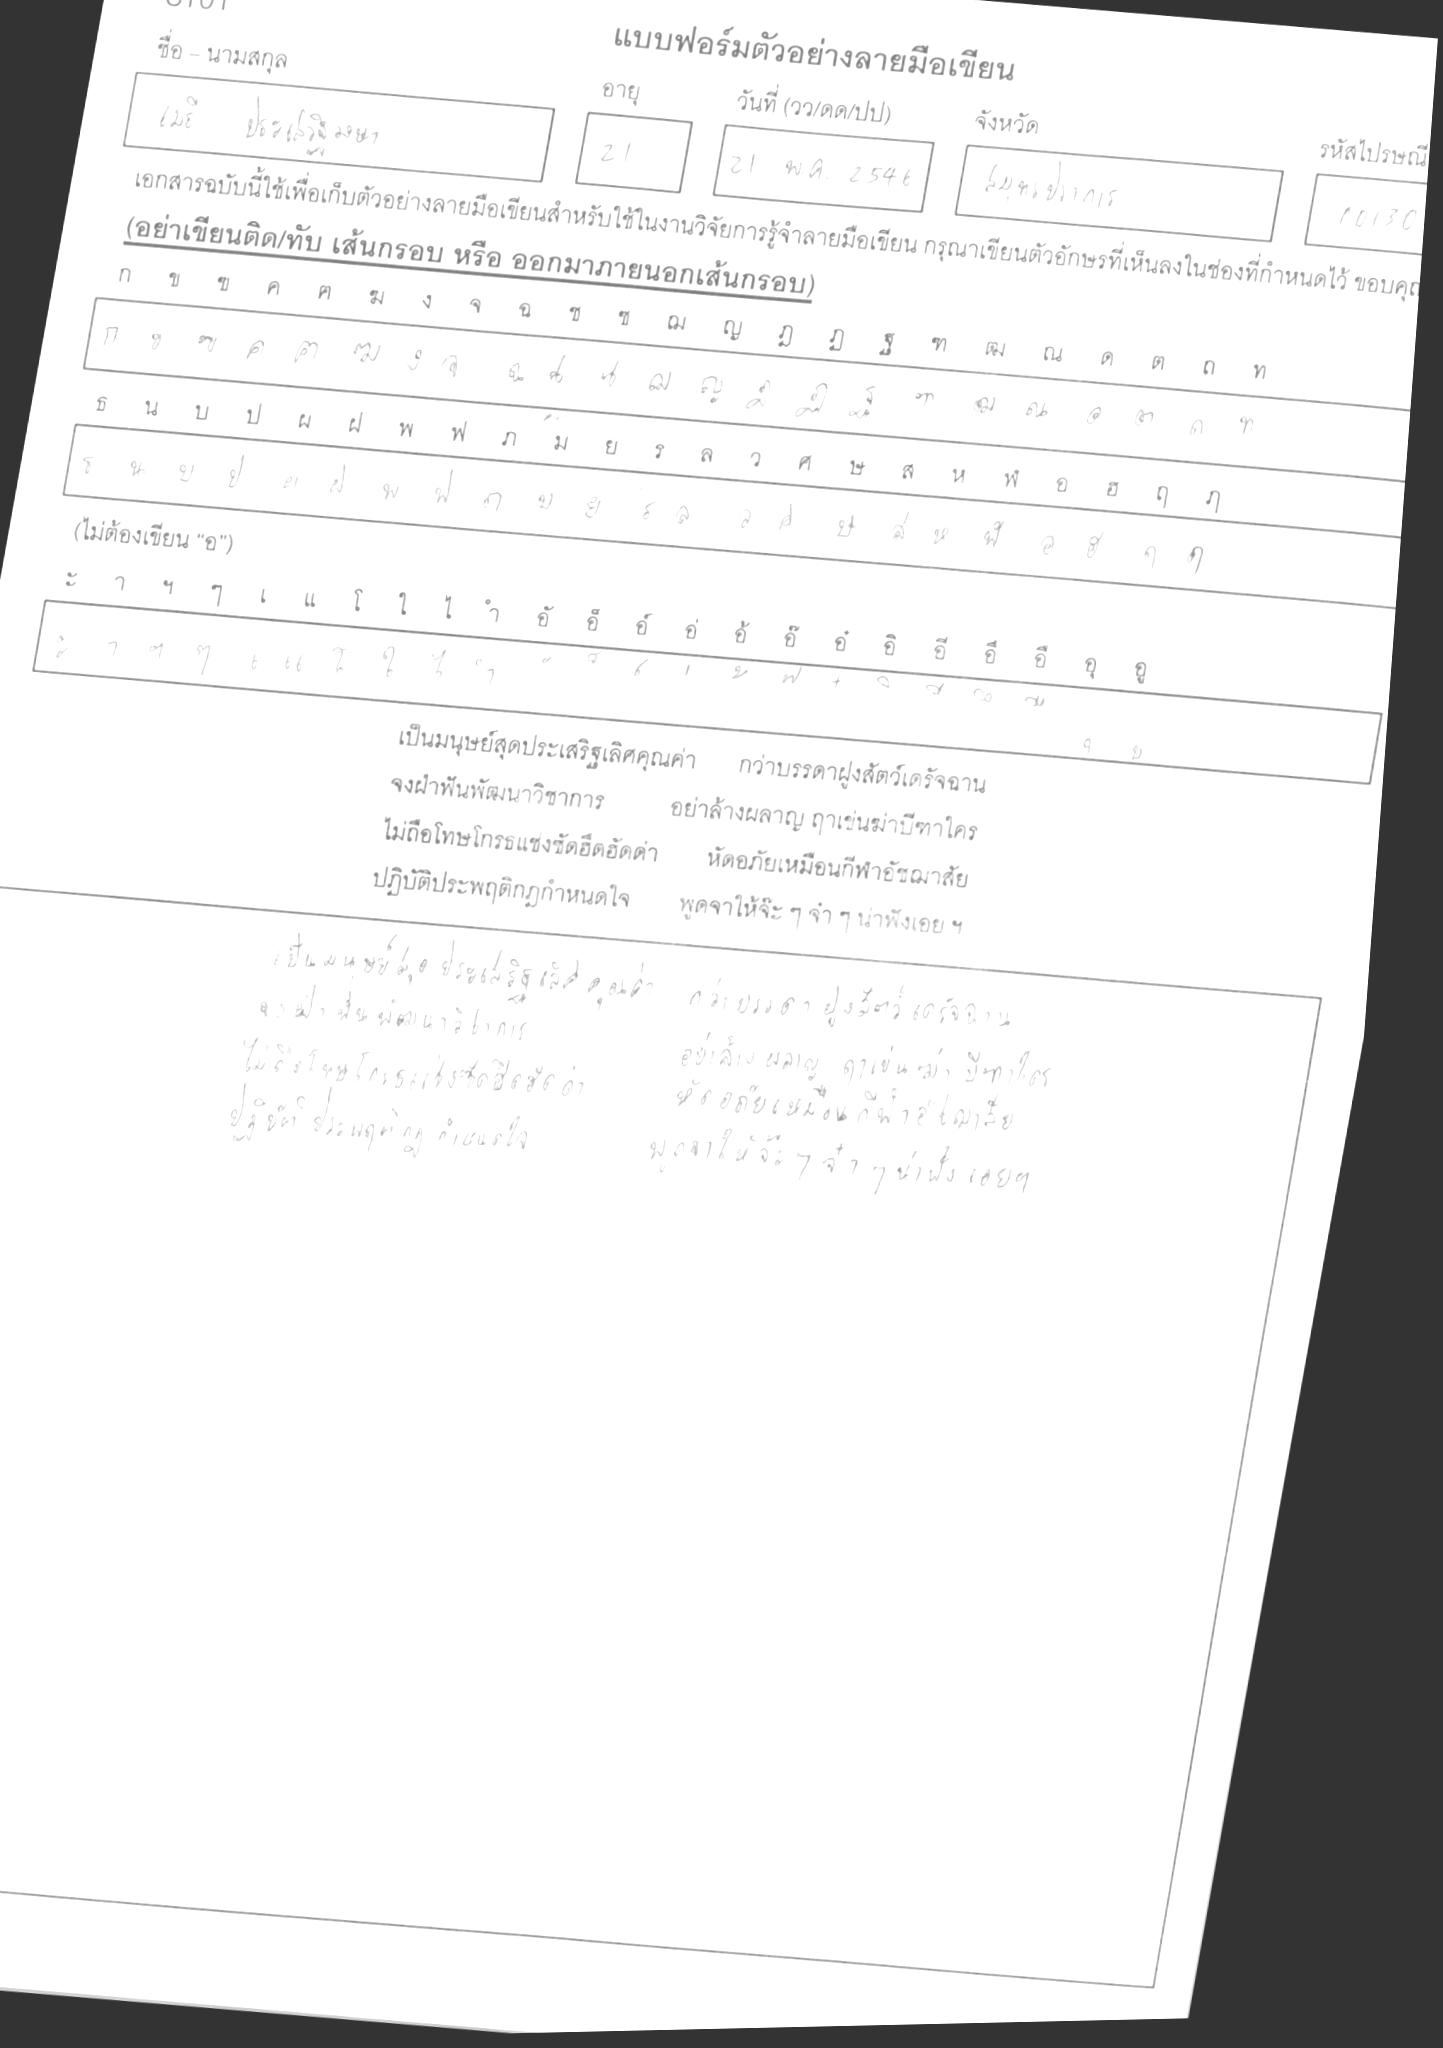 แบบฟอร์มตัวอย่างลายมือเขียน
ชื่อ – นามสกุล อายุ วันที่ (วว/ดด/ปป) จังหวัด รหัสไปรษณี
เมธี 21 21 พ.ค. 2546 สมุทรปราการ
เอกสารฉบับนี้ใช้เพื่อเก็บตัวอย่างลายมือเขียนสำหรับใช้ในงานวิจัยการรู้จำลายมือเขียน กรุณาเขียนตัวอักษรที่เห็นลงในช่องที่กำหนดไว้ ขอบคุณ
(อย่าเขียนติด/ทับ เส้นกรอบ หรือ ออกมาภายนอกเส้นกรอบ)
ก ข ฃ ค ฅ ฆ ง จ ฉ ช ซ ฌ ญ ฎ ฏ ฐ ฑ ฒ ณ ด ต ถ ท
ก ข ฃ ค ฅ ฆ ง จ ฉ ช ซ ฌ ญ ฎ ฏ ฐ ฑ ฒ ณ ด ต ถ ท
ธ น บ ป ผ ฝ พ ฟ ภ ม ย ร ล ว ศ ษ ส ห ฬ อ ฮ ฤ ฦ
ธ น บ ป ผ ฝ พ ฟ ภ ม ย ร ล ว ศ ษ ส ห ฬ อ ฮ ฤ ฦ
(ไม่ต้องเขียน “อ”)
ะ า ฯ ๆ เ แ โ ใ ไ ำ อั อ็ อ์ อ่ อ้ อ๊ อ๋ อิ อี อึ อื อุ อู
ะ า ฯ ๆ เ แ โ ใ ไ ำ ั ็ ์ ่ ้ ๊ ๋ ิ ี ึ ื ุ ู
เป็นมนุษย์สุดประเสริฐเลิศคุณค่า กว่าบรรดาฝูงสัตว์เดรัจฉาน
จงฝ่าฟันพัฒนาวิชาการ อย่าล้างผลาญ ฤาเข่นฆ่าบีฑาใคร
ไม่ถือโทษโกรธแช่งซัดฮึดฮัดด่า หัดอภัยเหมือนกีฬาอัชฌาสัย
ปฏิบัติประพฤติกฎกำหนดใจ พูดจาให้จ๊ะ ๆ จ๋า ๆ น่าฟังเอย ฯ
เป็นมนุษย์สุดประเสริฐเลิศคุณค่า กว่าบรรดาฝูงสัตว์เดรัจฉาน
จงฝ่าฟันพัฒนาวิชาการ อย่าล้างผลาญ ฤาเข่นฆ่าบีฑาใคร
ไม่ถือโทษโกรธแช่งซัดฮึดฮัดด่า หัดอภัยเหมือนกีฬาอัชฌาสัย
ปฏิบัติประพฤติกฎกำหนดใจ พูดจาให้จ๊ะ ๆ จ๋า ๆ น่าฟังเอยฯ